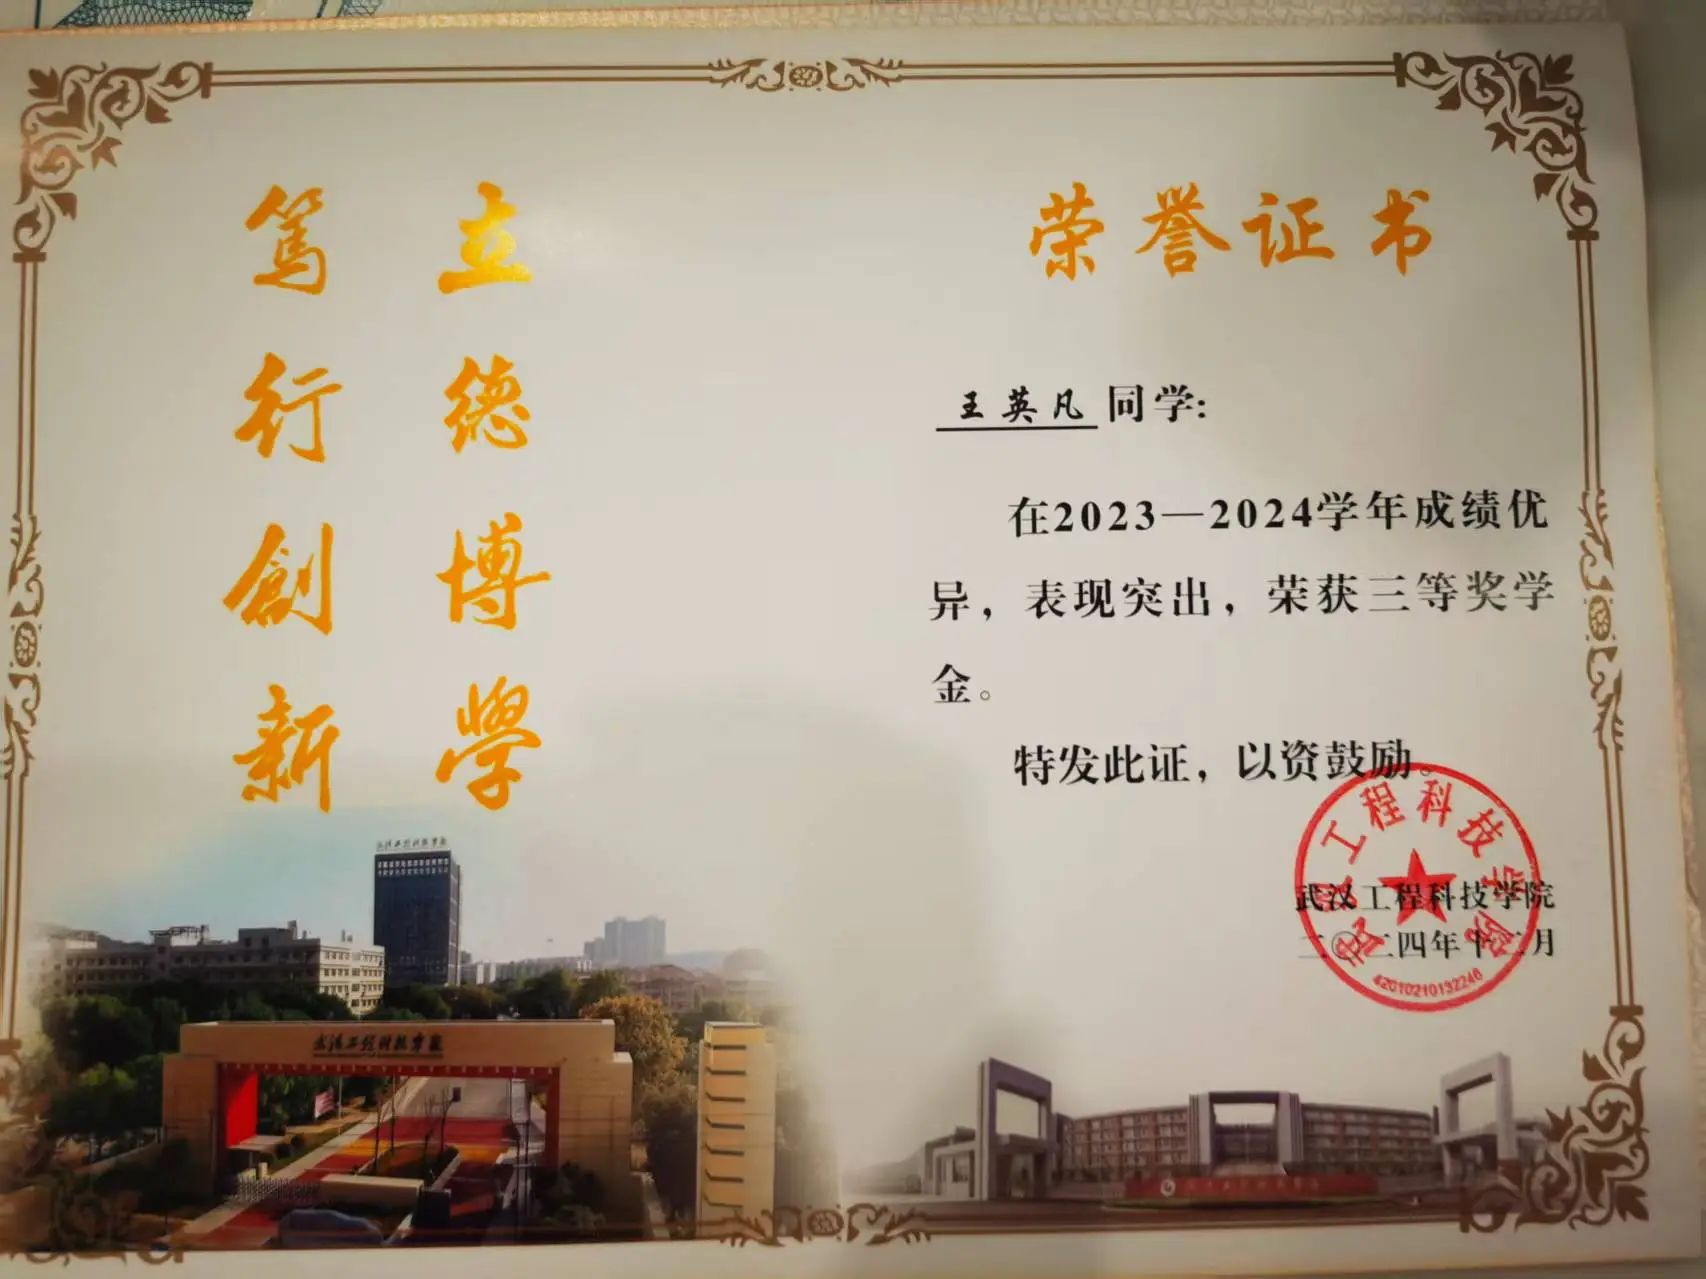 立德博學
篤行創新
荣誉证书
王英凡同学:
在2023—2024学年成绩优
异，表现突出，荣获三等奖学
金。
特发此证，以资鼓励。
武汉工程科技学院
二〇二四年十二月
武汉工程科技学院
42010210132246
武汉工程科技学院
武汉工程科技学院